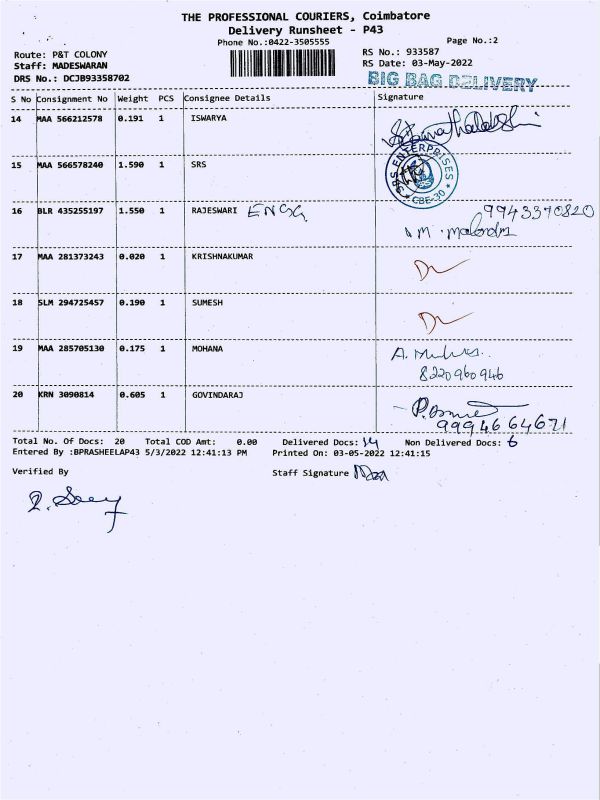 THE PROFESSIONAL COURIERS, Coimbatore
Delivery Runsheet - P43
Phone No.:0422-3505555
Page No.:2
Route: P&T COLONY
RS No.: 933587
Staff: MADESWARAN
RS Date: 03-May-2022
DRS No.: DCJB93358702
BIG BAG DELIVERY
S No Consignment No Weight PCS Consignee Details Signature
14 MAA 566212578 0.191 1 ISWARYA
15 MAA 566578240 1.590 1 SRS
SRS ENTERPRISES
CBE-30
16 BLR 435255197 1.550 1 RAJESWARI 9943370820
17 MAA 281373243 0.020 1 KRISHNAKUMAR
18 SLM 294725457 0.190 1 SUMESH
19 MAA 285705130 0.175 1 MOHANA
8220960946
20 KRN 3090814 0.605 1 GOVINDARAJ
9994664671
Total No. Of Docs: 20 Total COD Amt: 0.00 Delivered Docs: 14 Non Delivered Docs: 6
Entered By :BPRASHEELAP43 5/3/2022 12:41:13 PM Printed On: 03-05-2022 12:41:15
Verified By
Staff Signature